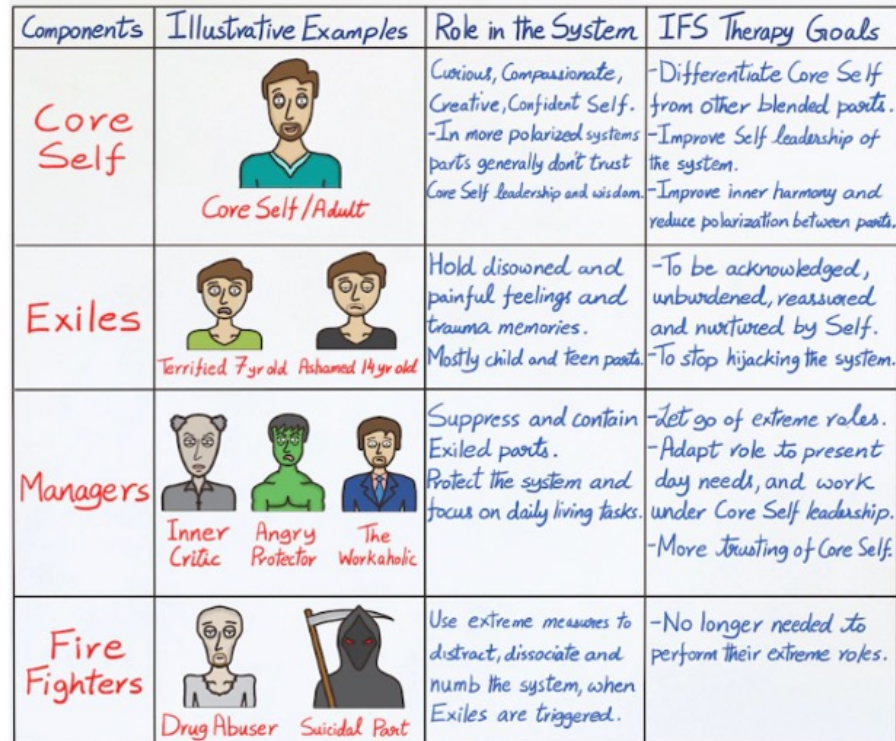 Components
Illustrative Examples
Role in the System
IFS Therapy Goals
Core
Self
Core Self/Adult
Curious, Compassionate,
Creative, Confident Self.
-In more polarized systems
parts generally don't trust
Core Self leadership and wisdom.
-Differentiate Core Self
from other blended parts.
-Improve Self leadership of
the system.
-Improve inner harmony and
reduce polarization between parts.
Exiles
Terrified 7yr old
Ashamed 14yr old
Hold disowned and
painful feelings and
trauma memories.
Mostly child and teen parts.
-To be acknowledged,
unburdened, reassured
and nurtured by Self.
-To stop hijacking the system.
Managers
Inner
Critic
Angry
Protector
The
Workaholic
Suppress and contain
Exiled parts.
Protect the system and
focus on daily living tasks.
-Let go of extreme roles.
-Adapt role to present
day needs, and work
under Core Self leadership.
-More trusting of Core Self.
Fire
Fighters
Drug Abuser
Suicidal Part
Use extreme measures to
distract, dissociate and
numb the system, when
Exiles are triggered.
-No longer needed to
perform their extreme roles.